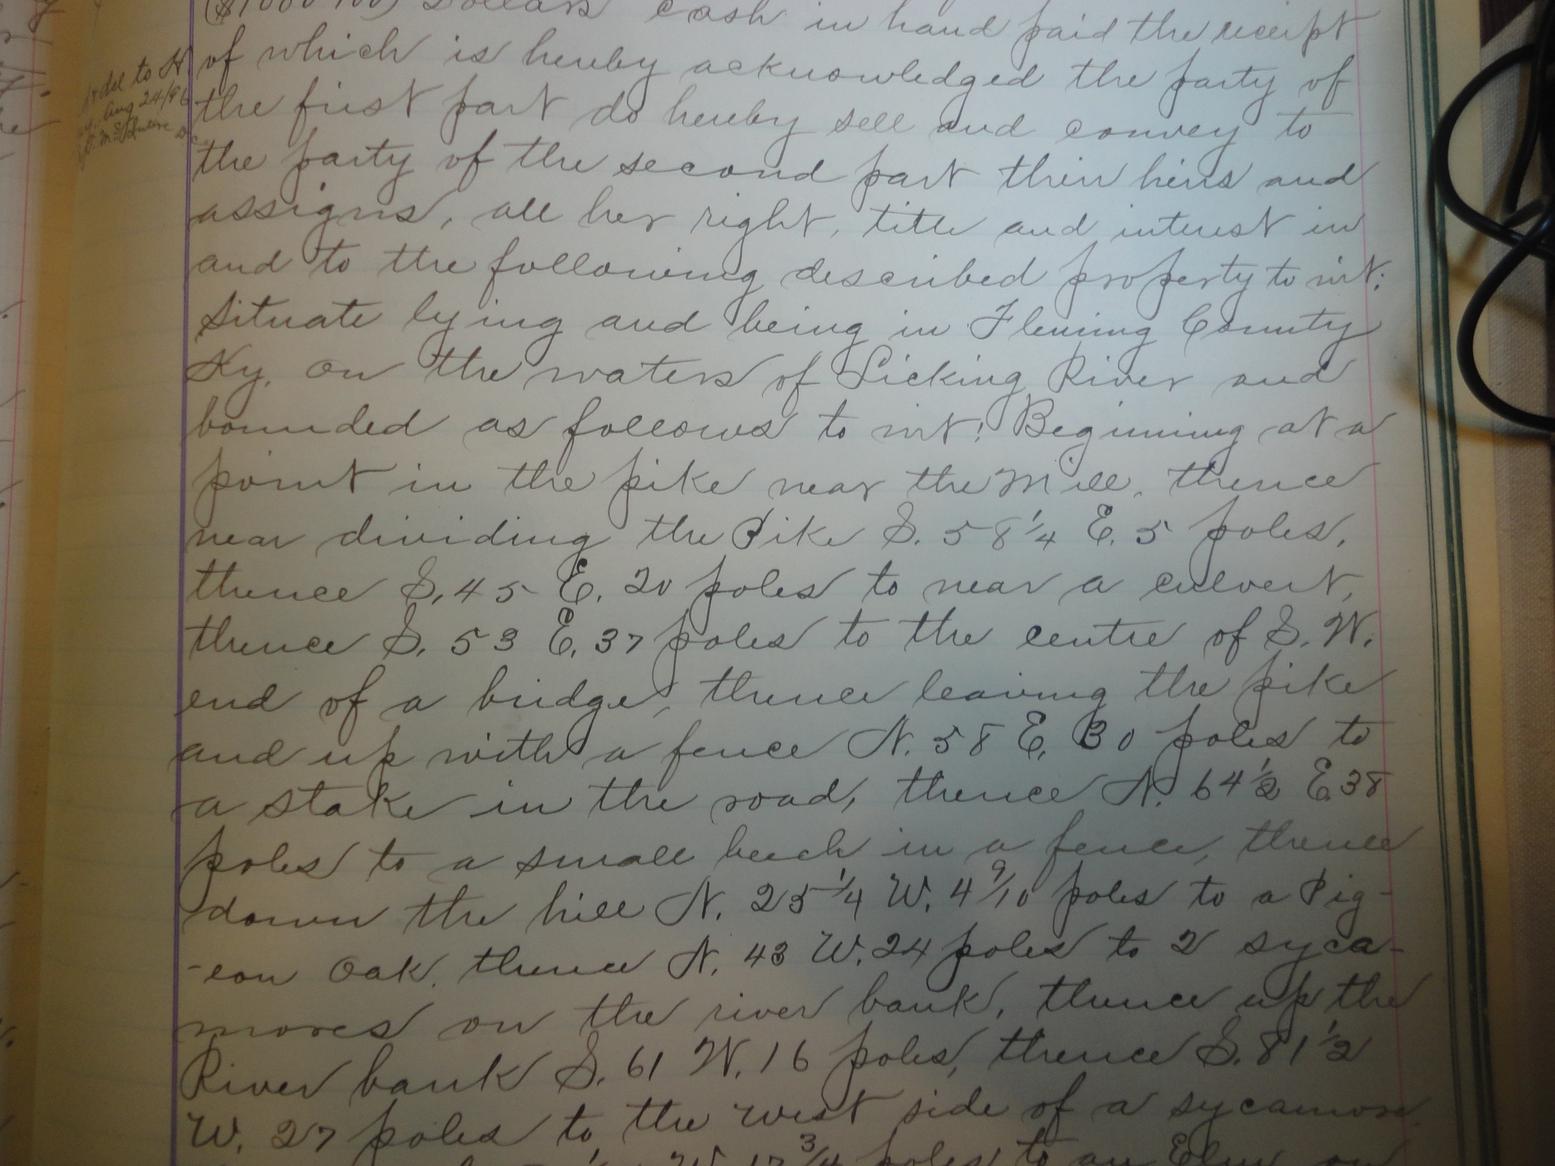 ($1000 00/100) Dollars cash in hand paid the receipt
of which is hereby acknowledged the party of
the first part do hereby sell and convey to
the party of the second part their heirs and
assigns, all her right, title and interest in
and to the following described property to wit:
Situate lying and being in Fleming County
Ky. on the waters of Licking River and
bounded as follows to wit: Beginning at a
point in the pike near the Mill, thence
near dividing the Pike S. 58 1/4 E. 5 poles,
thence S. 45 E. 20 poles to near a culvert,
thence S. 53 E. 37 poles to the centre of S. W.
end of a bridge, thence leaving the pike
and up with a fence N. 58 E. 30 poles to
a stake in the road, thence N. 64 1/2 E 38
poles to a small beech in a fence, thence
down the hill N. 25 1/4 W. 4 9/10 poles to a Pig-
-eon Oak, thence N. 43 W. 24 poles to 2 syca-
mores on the river bank, thence up the
River bank S. 61 W. 16 poles, thence S. 81 1/2
W. 27 poles to the west side of a sycamore
W. 17 3/4 poles to an Elm on
del to H
Aug 24/96